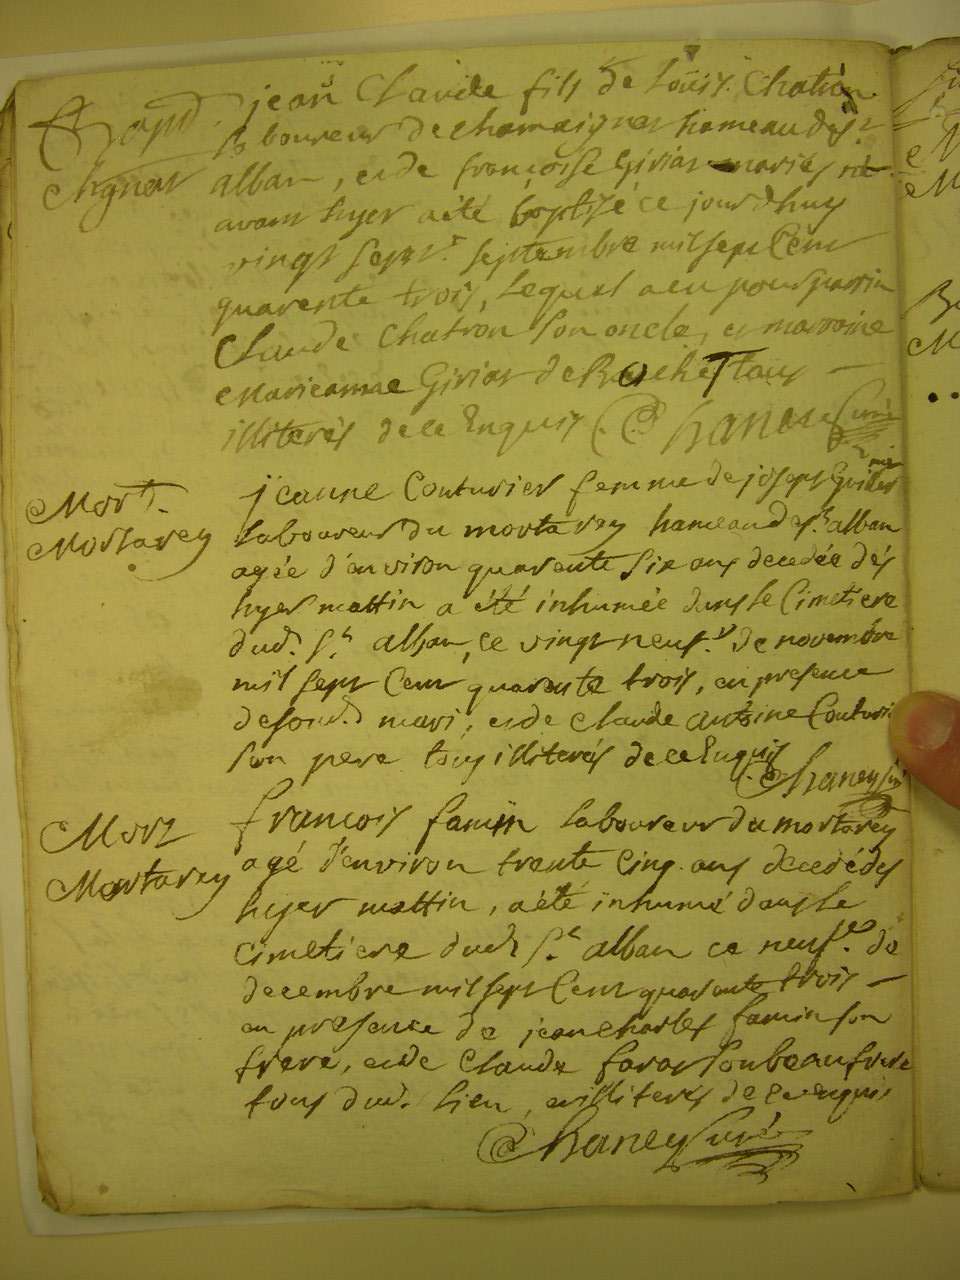 Bapt.
Chgnat
jean Claude fils de Loüis Chatron
laboureur de chamaignat hameau de st
alban, et de françoise Giriat mariés né
avant hyer a été baptisé ce jourdhuy
vingt sept.e septembre mil sept Cent
quarente trois, Lequel a eu pour parrin
Claude Chatron son oncle, et marraine
Marieanne Giriat de
illiterés de ce Enquis Chaney Curé
Mort.
Mortarey
jeanne Couturier femme de joseph
laboureur du mortarey hameau de st alban
agée d'environ quarente six ans decedée dés
hyer mattin a été inhumée dans le Cimetiere
dud. st. alban, ce vingt neuf.e de novembre
mil sept Cent quarente trois, en presence
de sond. mari, et de Claude antoine Couturier
son pere tous illiterés de ce Enquis
Chaney Curé
Mort
Mortarey
françois famin laboureur du mortarey
agé d'environ trente cinq ans decedé des
hyer mattin, a été inhumé dans le
cimetiere dud. st. alban ce neuf.e de
decembre mil sept Cent quarente trois
en presence de jean charles famin son
frere, et de Claude farat son beaufrere
tous dud. lieu, et illiterés de ce enquis
Chaney Curé